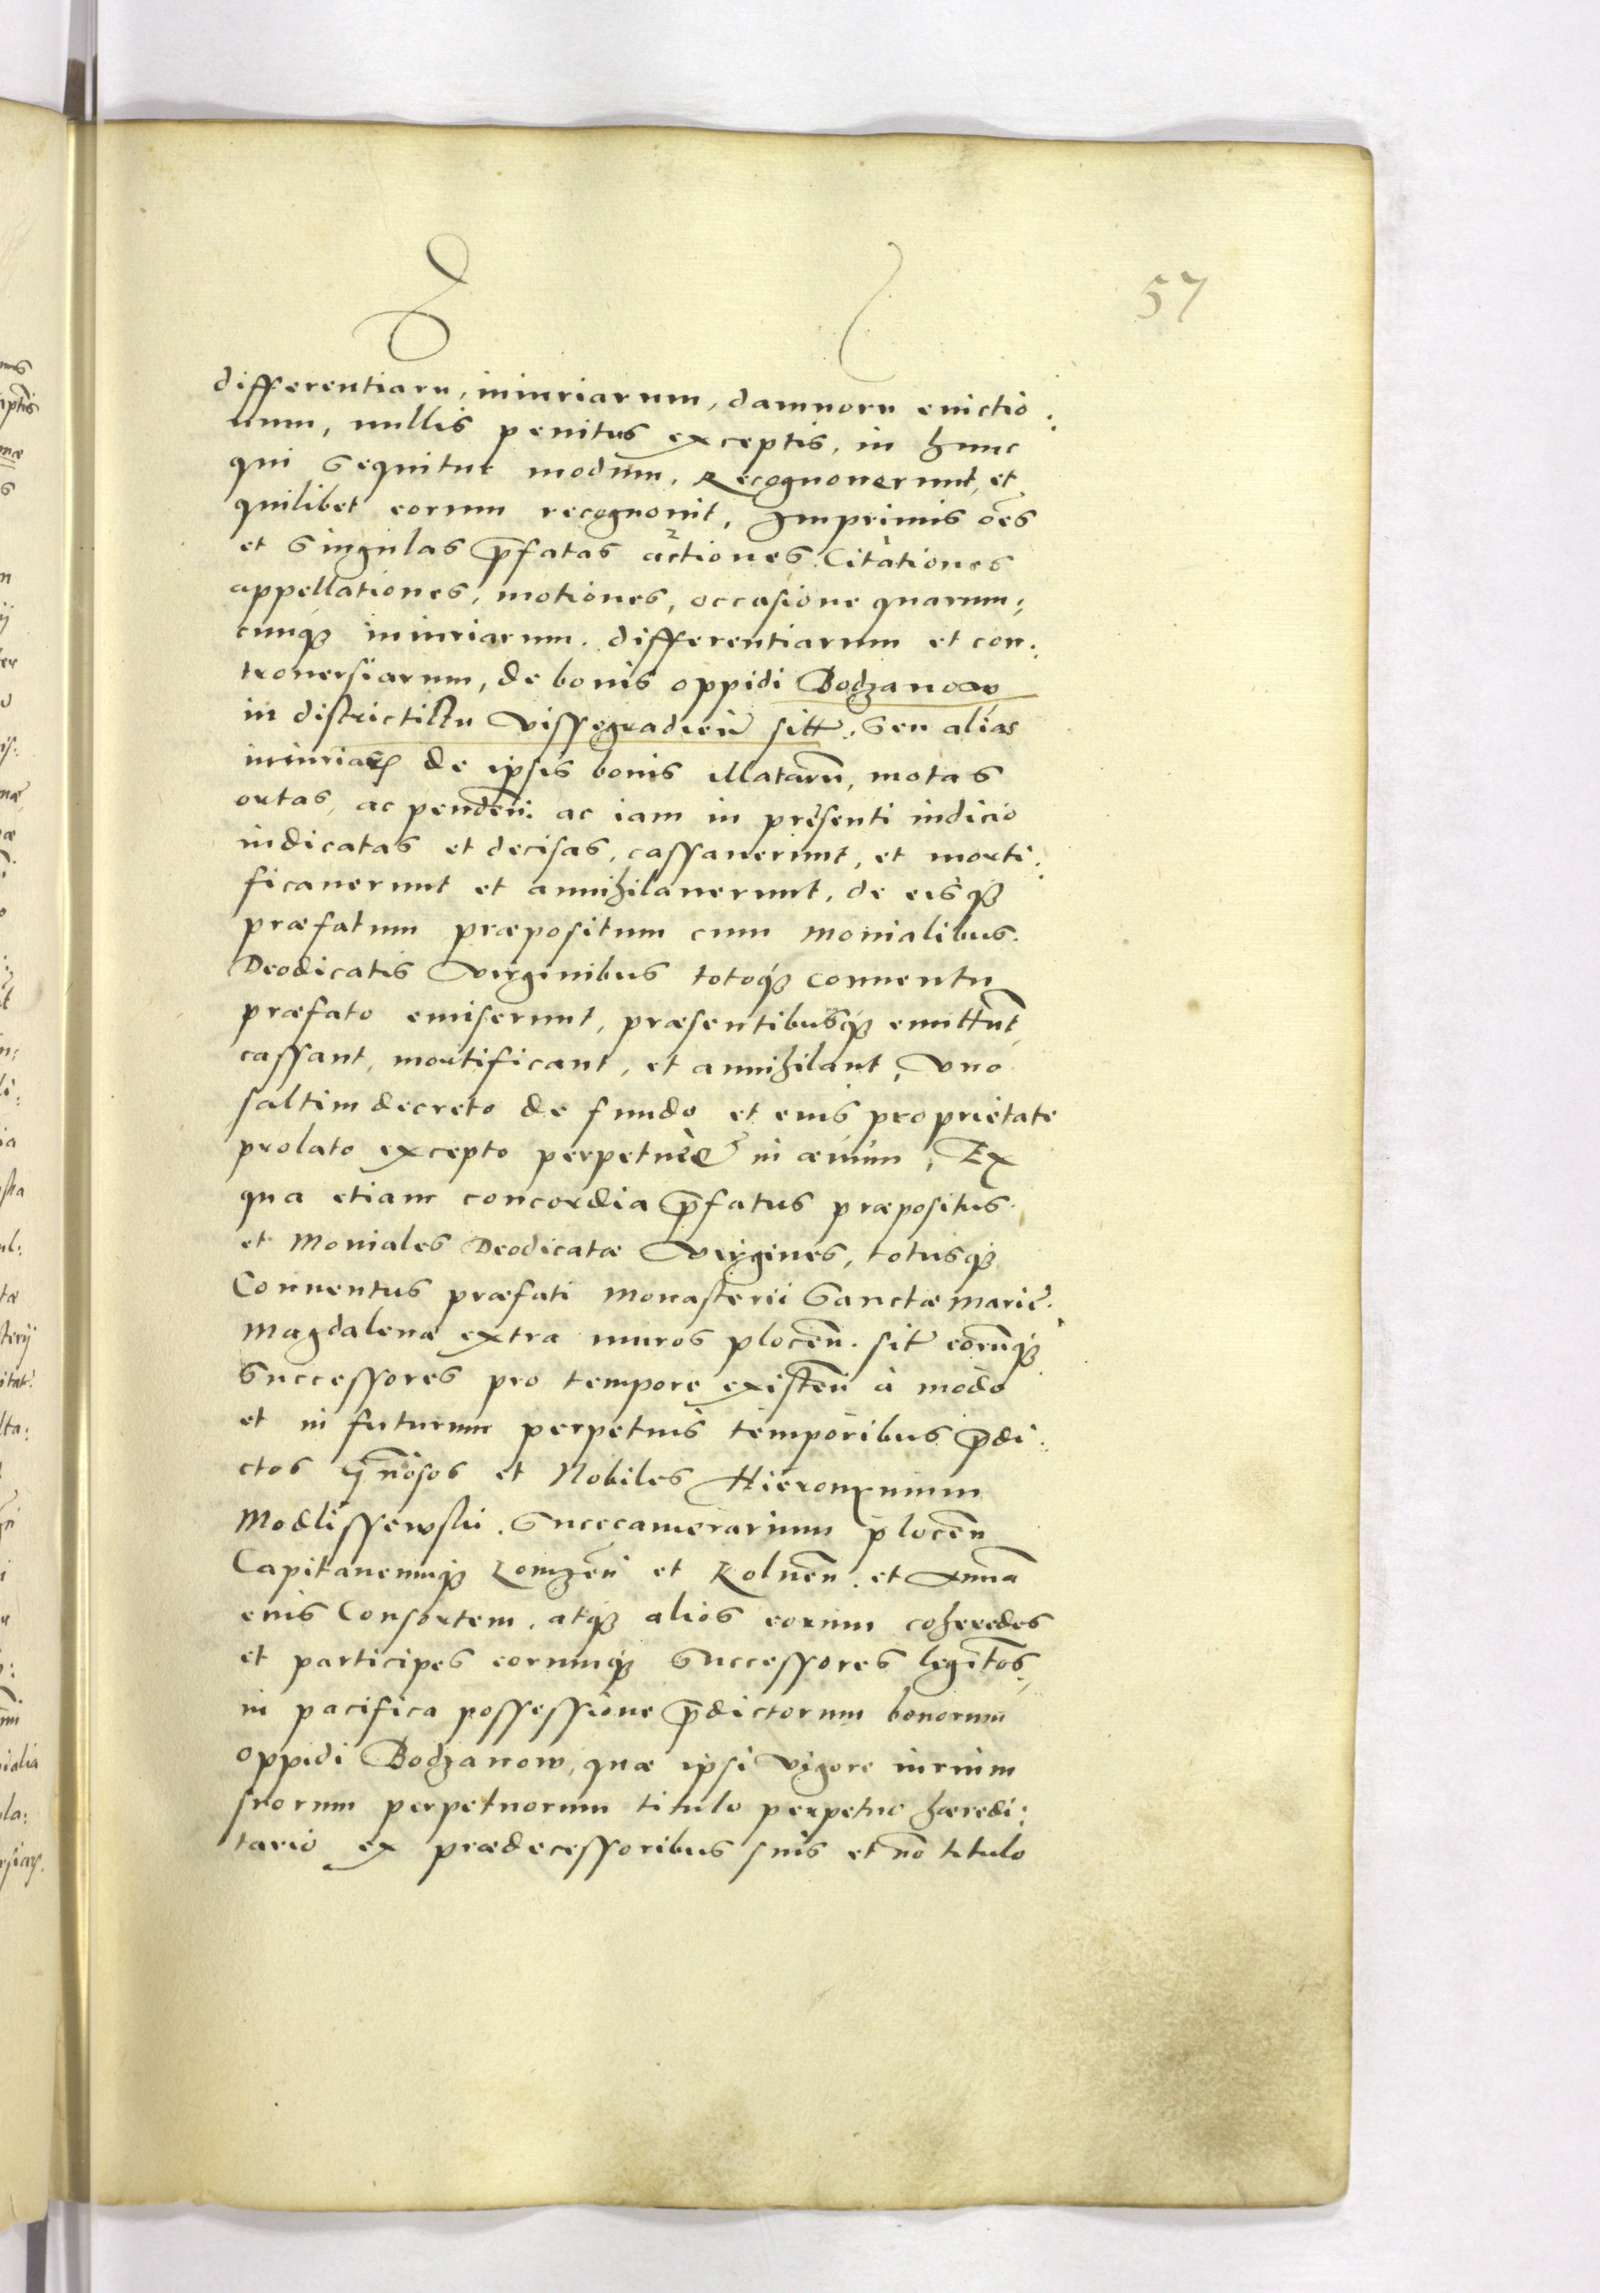 57
differentiaru, iniuriarum, damnoru euictio:
num, nullis penitus exceptis, in hunc
qui sequitur modum, Recognouerunt, et
quilibet eorum recognouit, Imprimis oẽs
et singulas p̃fatas actiones Citationes
appellationes, motiones, occasione quarum:
cunq3 iniuriarum, differentiarum et con:
trouersiarum, de bonis oppidi Bodzanow
in districtu Vissegradieñ sitt. seu alias
iniuriaꝝ de ipsis bonis illatarũ, motas
ortas, ac pendeñ. ac iam in presenti iudicio
iudicatas et decisas, cassauerunt, et morti:
ficauerunt et annihilauerunt, de eisq3
præfatum præpositum cum Monialibus.
Deodicatis Virginibus totoq3 conuentu
præfato emiserunt, præsentibusq3 emittũt,
cassant, mortificant, et annihilant, Vno
saltim decreto de fundo et eius proprietate
prolato excepto perpetuè in æuum, Ex
qua etiam concordia p̃fatus præpositus.
et Moniales Deodicatæ Virgines, totusq3
Conuentus præfati Monasterii Sanctæ Marię.
Magdalenæ extra muros Ploceñ. sit eorũq3
Successores pro tempore existeñ à modo
et in futurum perpetuis temporibus p̃di:
ctos g̃nosos et Nobiles Hieronymum
Modlissewski. Succamerarium Ploceñ
Capitaneumq3 Lomzeñ et Kolneñ. et Annã
eius Consortem, atq3 alios eorum coheredes
et participes eorumq3 Successores legitĩos,
in pacifica possessione p̃dictorum bonorum
oppidi Bodzanow, quæ ipsi vigore iurium
suorum perpetuorum titulo perpetuo hæredi:
tario ex prædecessoribus suis et nõ titulo